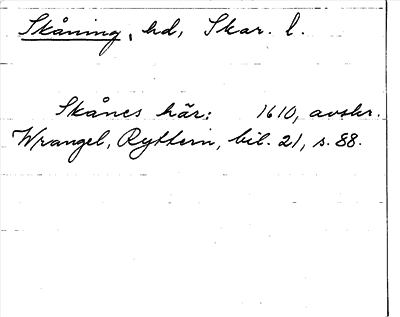 Skåning, hd, Skar. l.
Skånes här: 1610, avskr.
Wrangel, Ryttern, bil. 21, s. 88.